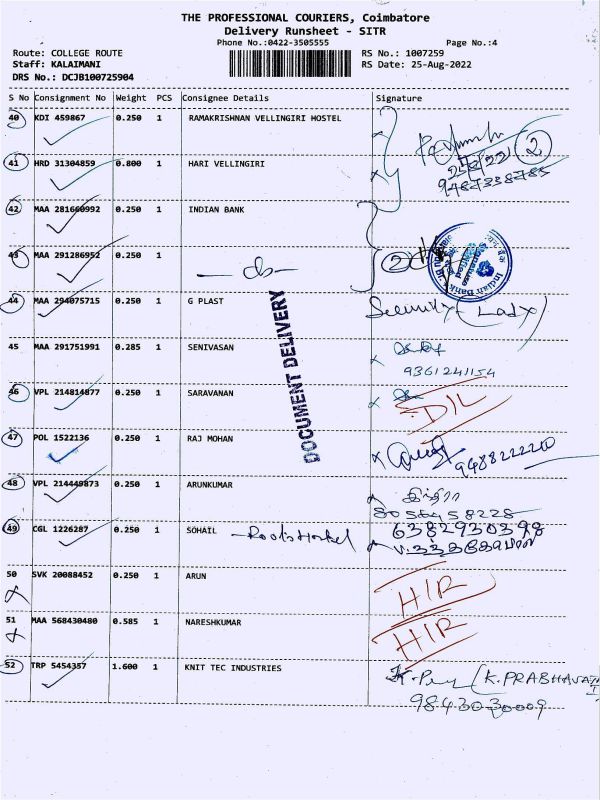 THE PROFESSIONAL COURIERS, Coimbatore
Delivery Runsheet - SITR
Phone No.:0422-3505555 Page No.:4
Route: COLLEGE ROUTE RS No.: 1007259
Staff: KALAIMANI RS Date: 25-Aug-2022
DRS No.: DCJB100725904
S No Consignment No Weight PCS Consignee Details Signature
40 KDI 459867 0.250 1 RAMAKRISHNAN VELLINGIRI HOSTEL
2
41 HRD 31304859 0.800 1 HARI VELLINGIRI
9487338785
42 MAA 281660992 0.250 1 INDIAN BANK
43 MAA 291286952 0.250 1 2
Indian Bank
44 MAA 294075715 0.250 1 G PLAST Security (Lady)
DOCUMENT DELIVERY
45 MAA 291751991 0.285 1 SENIVASAN
9361241154
46 VPL 214814877 0.250 1 SARAVANAN D/L
47 POL 1522136 0.250 1 RAJ MOHAN
9488222220
48 VPL 214449873 0.250 1 ARUNKUMAR இந்திரா
8056458228
49 CGL 1226287 0.250 1 SOHAIL - Roots Hostel 6382930398
50 SVK 20088452 0.250 1 ARUN H/R
51 MAA 568430480 0.585 1 NARESHKUMAR H/R
52 TRP 5454357 1.600 1 KNIT TEC INDUSTRIES (K.PRABHAVATHI
9843030009